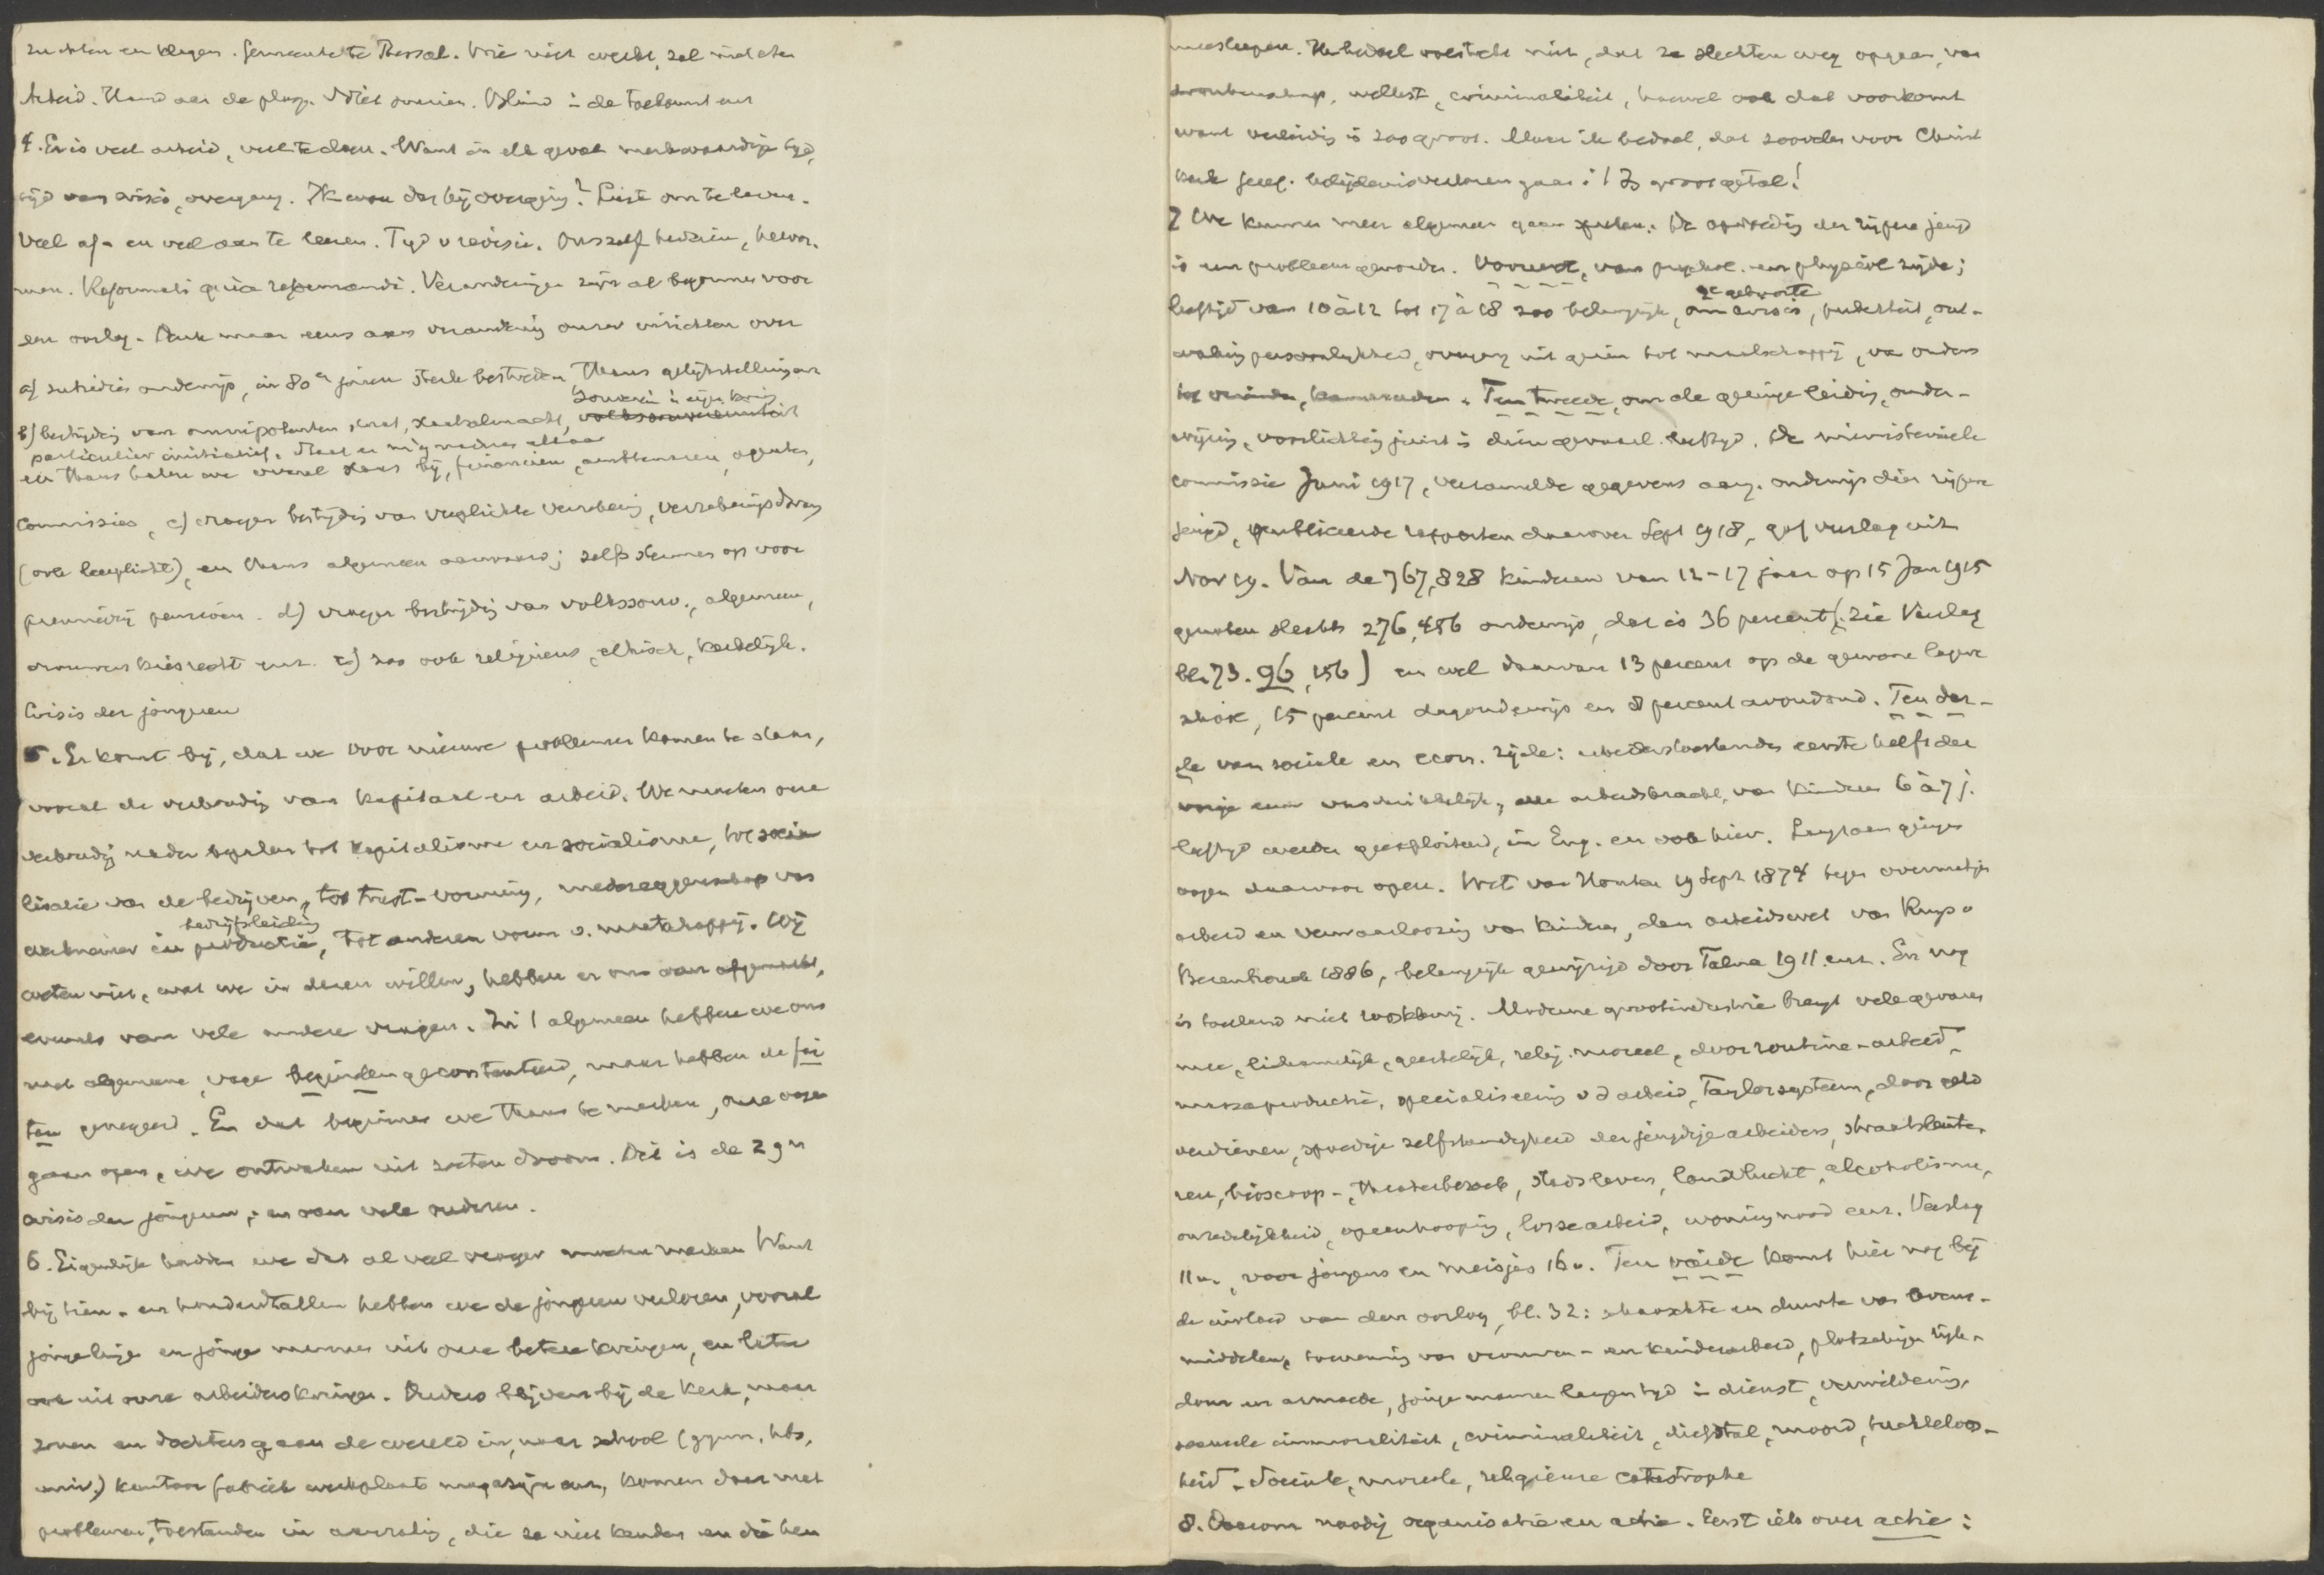 zuchten en klagen. Gemeente te Thessal. Wie niet werkt, zal niet eten
Arbeid. Hand aan de ploeg. Niet omzien. Blind in de toekomst en
4. Er is veel arbeid, veel te doen. Want in elk geval merkwaardige tijd,
tijd van crisis, overgang. Ik eron der bij overging? Lust om te leven.
Veel af- en veel aan te leeren. Tijd v revisie. Onszelf herzien, hervor-
men. Reformati quia reformandi. Veranderingen zijn al begonnen voor
den oorlog. Denk maar eens aan verandering onzer inzichten over
a) subsidie onderwijs, in 80er jaren sterk bestreden, thans gelijkstelling enz
souverein in eigen kring
b) bestrijding van omnipotenten staat, staatsalmacht, volkssouvereiniteit
particulier initiatief. Staat en mij nadren elkaar
en thans halen we overal staat bij, financieën, ambtenaren, agenten,
commissies, c) vroeger bestrijding van verplichte verzekering, verzekeringsdwang
(ook leerplicht), en thans algemeen aanvaard; zelfs stemmen op voor
premievrij pensioen. d) vroeger bestrijding van volkssouv., algemeen,
vrouwenkiesrecht enz. e) zoo ook religieus, ethisch, kerkelijk.
Crisis der jongeren
5. Er komt bij, dat we voor nieuwe problemen komen te staan,
vooral de verhouding van kapitaal en arbeid. We moeten onze
verhouding nader bepalen tot kapitalisme en socialisme, tot socia
lisatie van de bedrijven, tot trust-vorming, medezeggenschap van
bedrijfsleiding
werknemer in productie, tot anderen vorm v. maatschappij. Wij
weten niet, wat we in dezen willen, hebben er ons van afgemaakt,
evenals van vele andere vragen. In 't algemeen hebben we ons
met algemeene, vage beginselen geconstenteerd, maar hebben de fei
ten genegeerd. En dat beginnen we thans te merken, onze oogen
gaan open, we ontwaken uit zoeten droom. Dit is de zgn
crisis der jongeren, en van vele ouderen.
6. Eigenlijk hadden we dat al veel vroeger moeten merken Want
bij tien- en honderdtallen hebben we de jongeren verloren, vooral
jongelingen en jonge mannen uit onze betere kringen, en later
ook uit onze arbeiderskringen. Ouders blijven bij de kerk, maar
zonen en dochters gaan de wereld in, naar school (gymn. hbs,
univ.) kantoor fabriek werkplaats magazijn enz, komen daar met
problemen, toestanden in aanraking, die ze niet kenden en die hen
meesleepen. Ik bedoel volstrekt niet, dat ze slechten weg opgaan, van
dronkenschap, wellust, criminaliteit, hoewel ook dat voorkomt
want verleiding is zoo groot. Maar ik bedoel, dat zoovelen voor Christ
kerk geref. belijdenis verloren gaan i! Zo groot getal!
7 We kunnen meer algemeen gaan spreken. De opvoeding der rijpere jeugd
is een probleem geworden. Vooreerst, van psychol. en physiol zijde;
2e geboorte
leeftijd van 10 à 12 tot 17 à 18 zoo belangrijk, om crisis, puberteit, ont-
waking persoonlijkheid, overgang uit gezin tot maatschappij, van ouders
tot vrienden, kameraden. Ten tweede, om de geringe leiding, onder-
wijzing, voorlichting juist in dien gevaarl. leeftijd. De ministerieele
commissie Juni 1917, verzamelde gegevens aang. onderwijs dier rijpere
jeugd, publiceerde rapporten daarover Sept 1918, gaf verslag uit
Nov 19. Van de 767,828 kinderen van 12-17 jaar op 15 Jan 1915
genoten slechts 276,456 onderwijs, dat is 36 percent (zie Verslag
bl. 73. 96, 156) en wel daarvan 13 percent op de gewone lagere
school, 15 percent dagonderwijs en 8 percent avondond. Ten der-
de van sociale en econ. zijde: arbeidstoestanden eerste helft der
vorige eeuw verschrikkelijk, alle arbeidskracht, van kinderen 6 à 7 j.
leeftijd werden geexploiteerd, in Eng. en ook hier. Langzaam gingen
oogen daarvoor open. Wet van Houten 19 Sept 1874 tegen overmatigen
arbeid en verwaarloozing van kinderen, dan arbeidswet van Ruys v
Beerenbrouck 1886, belangrijk gewijzigd door Talma 1911 enz. En nog
is toestand niet rooskleurig. Moderne grootindustrie brengt vele gevaren
mee, lichamelijk, geestelijk, relig. moreel, door routine-arbeid,
massaproductie, specialiseering v d arbeid, Taylorsysteem, door geld
verdienen, spoedige zelfstandigheid der jeugdige arbeiders, straatslente-
ren, bioscoop-, theaterbezoek, stadsleven, landlucht, alcoholisme,
onzedelijkheid, opeenhooping, losse arbeid, woningnood enz. Verslag
11v., voor jongens en meisjes 16v. Ten vierde komt hier nog bij
de invloed van den oorlog, bl. 32: schaarschte en duurte van levens-
middelen, toeneming van vrouwen- en kinderarbeid, plotselinge rijk-
dom en armoede, jonge mannen langen tijd in dienst, verwildering,
sexueele immoraliteit, criminaliteit, diefstal, moord, tuchteloos-
heid. Sociale, moreele, religieuze catastrophe
8. Daarom noodig organisatie en actie. Eerst iets over actie: